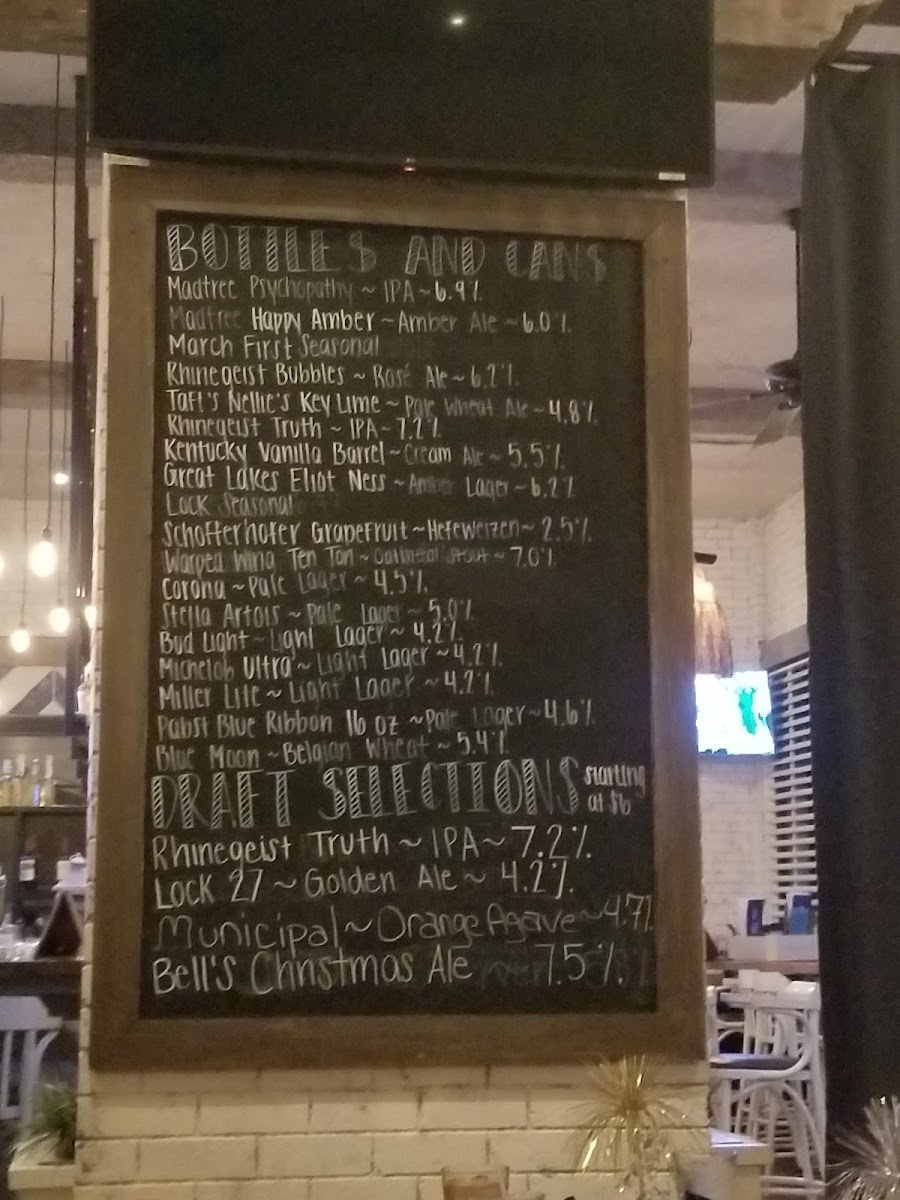 BOTTLES AND CANS
Madtree Psychopathy ~ IPA ~ 6.9%
Madtree Happy Amber ~ Amber Ale ~ 6.0%
March First Seasonal
Rhinegeist Bubbles ~ Rosé Ale ~ 6.2%
Taft's Nellie's Key Lime ~ Pale Wheat Ale ~ 4.8%
Rhinegeist Truth ~ IPA ~ 7.2%
Kentucky Vanilla Barrel ~ Cream Ale ~ 5.5%
Great Lakes Eliot Ness ~ Amber Lager ~ 6.2%
Lock Seasonal
Schofferhofer Grapefruit ~ Hefeweizen ~ 2.5%
Warped Wing Ten Ton ~ Oatmeal Stout ~ 7.0%
Corona ~ Pale Lager ~ 4.5%
Stella Artois ~ Pale Lager ~ 5.0%
Bud Light ~ Light Lager ~ 4.2%
Michelob Ultra ~ Light Lager ~ 4.2%
Miller Lite ~ Light Lager ~ 4.2%
Pabst Blue Ribbon 16 oz ~ Pale Lager ~ 4.6%
Blue Moon ~ Belgian Wheat ~ 5.4%
DRAFT SELECTIONS starting at $6
Rhinegeist Truth ~ IPA ~ 7.2%
Lock 27 ~ Golden Ale ~ 4.2%
Municipal ~ Orange Agave ~ 4.7%
Bell's Christmas Ale 7.5%